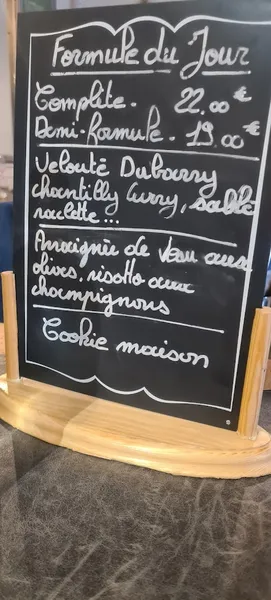 Formule du Jour
Complète. 22.00€
Demi-formule. 19.00€
Velouté Dubarry
chantilly Curry, sablé
raclette...
Araignée de veau aux
olives, risotto aux
champignons
Cookie maison